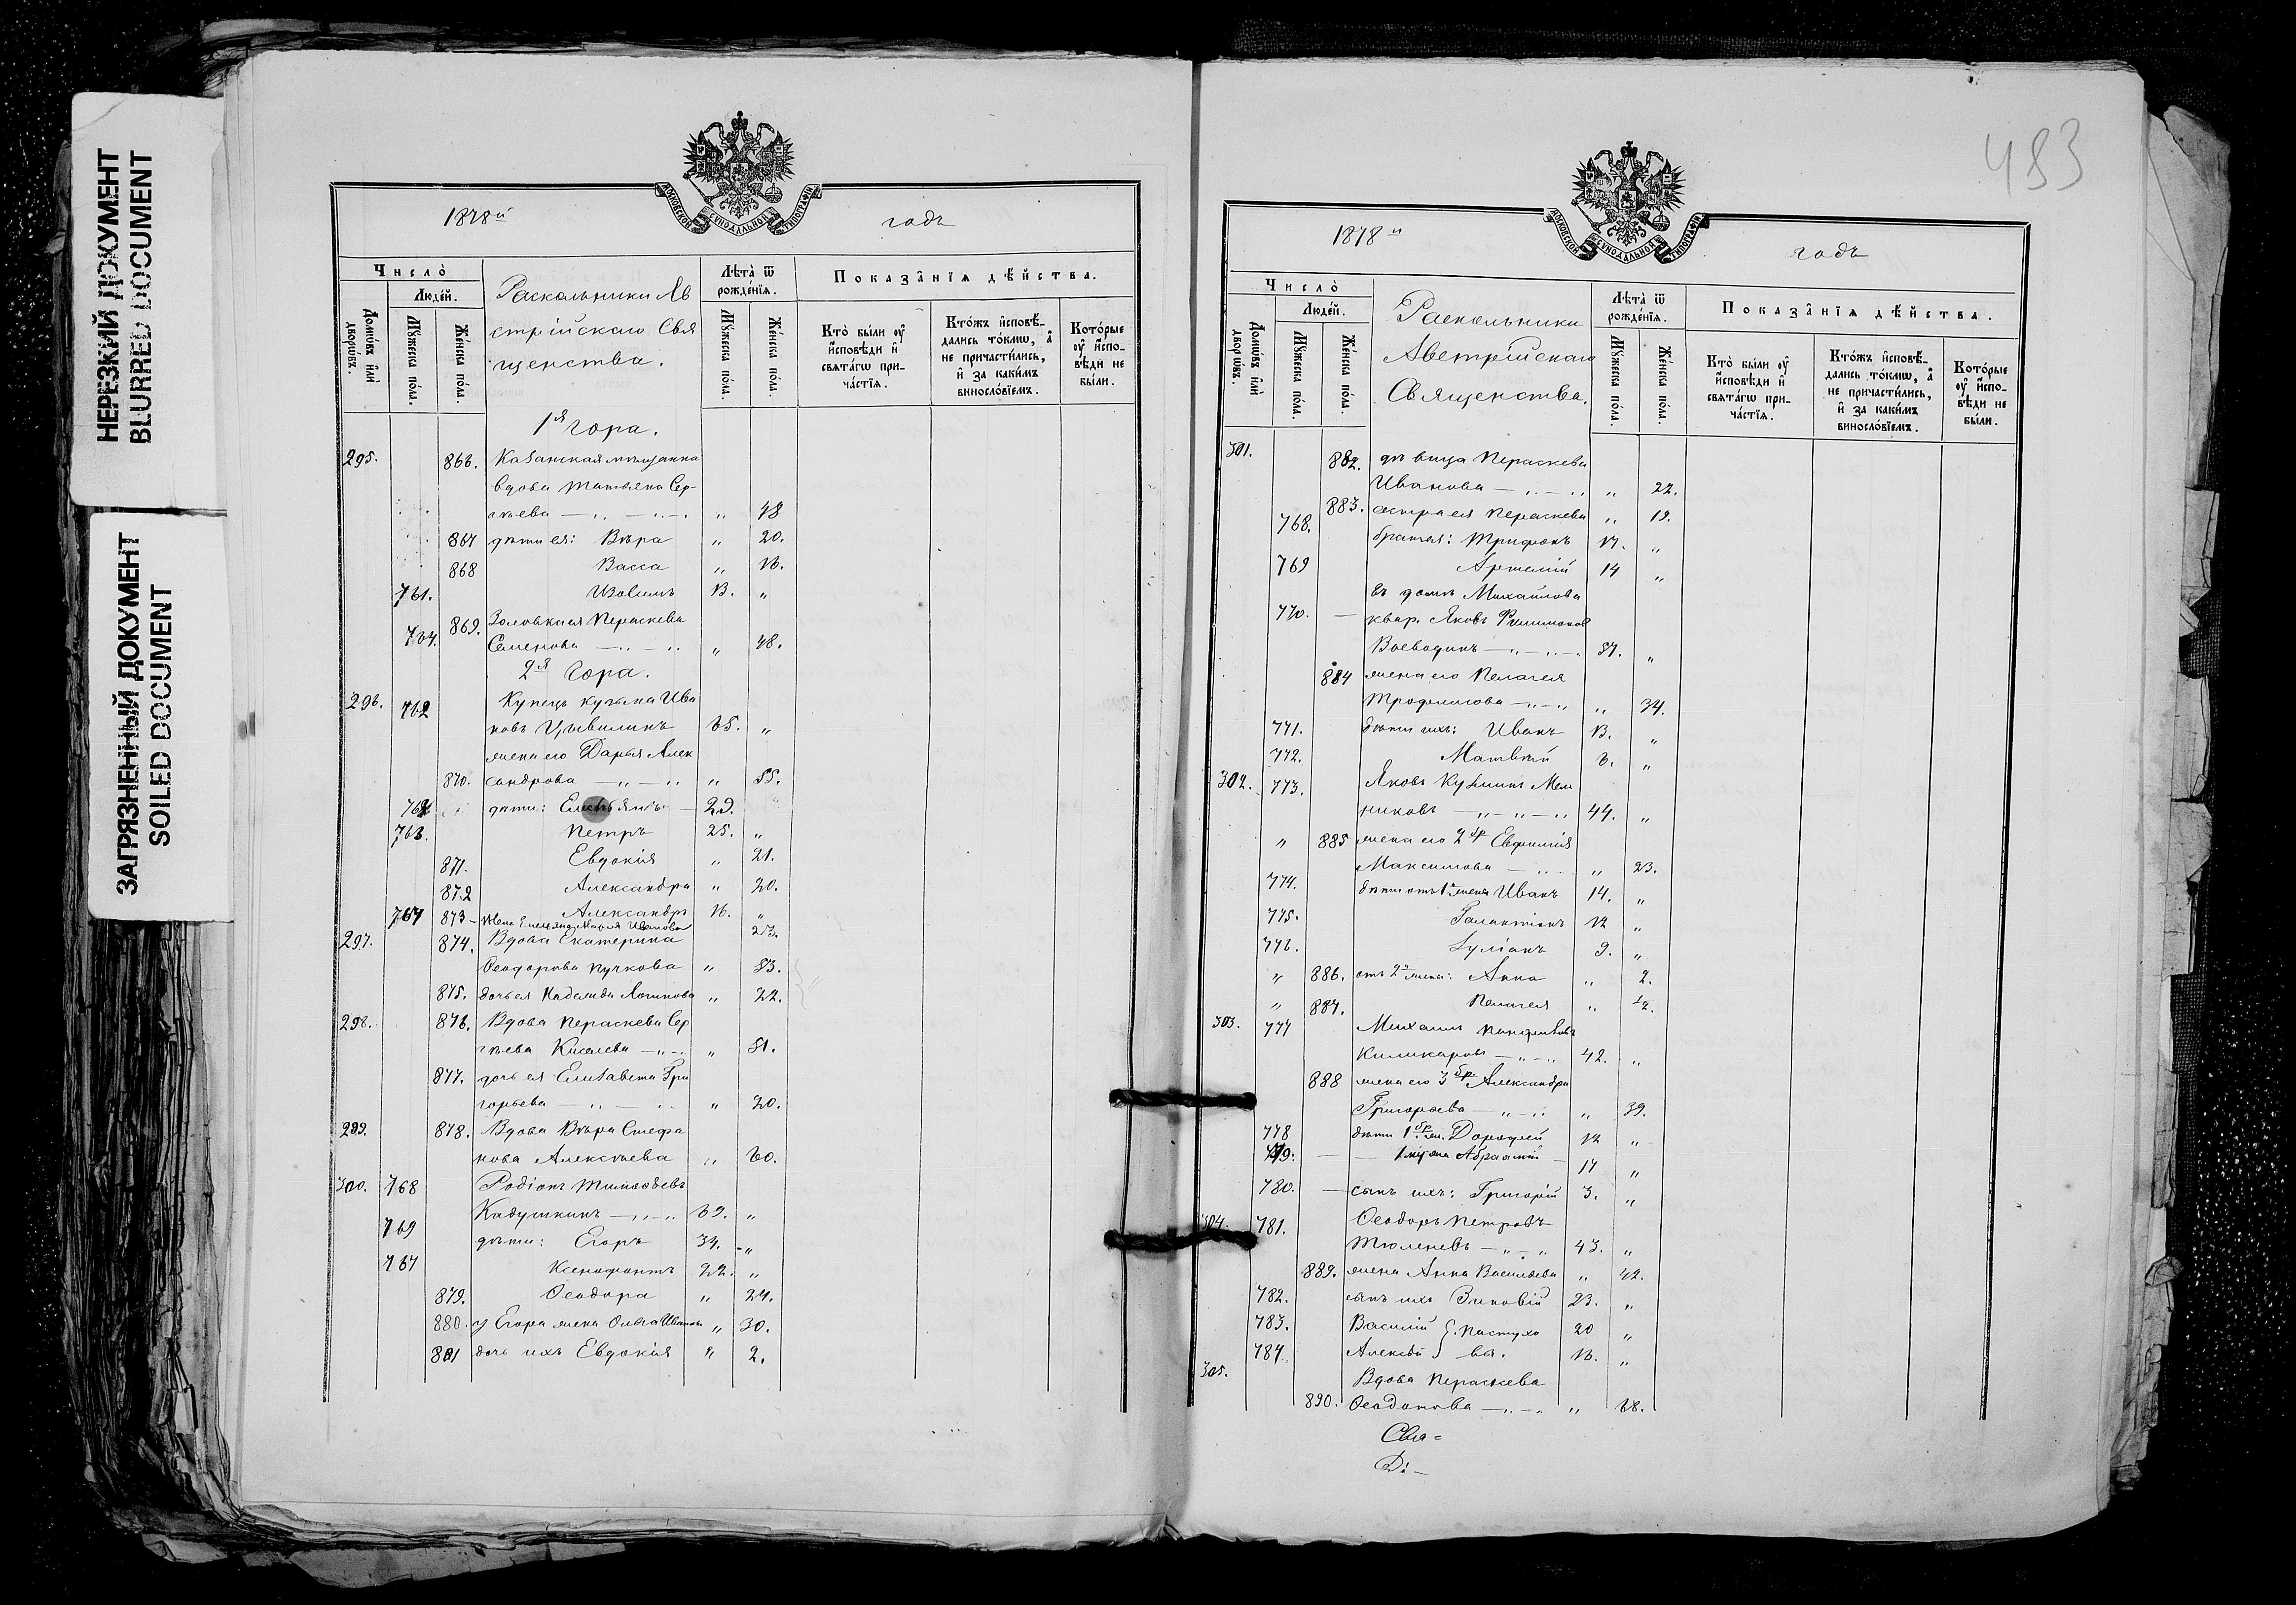 НЕРЕЗКИЙ ДОКУМЕНТ
BLURRED DOCUMENT
ЗАГРЯЗНЕННЫЙ ДОКУМЕНТ
SOILED DOCUMENT
МОСКОВСКОЙ СѴНОДАЛЬНОЙ ТИПОГРАФІИ
1878й годъ
Число̀
Домѡ́въ и҆лѝ дворѡ́въ.
Люде́й.
Мꙋ́жеска по́ла.
Же́нска по́ла.
Раскольники Ав
стрійскаго Свя
щенства.
Лѣ́та ѿ рожде́нїѧ.
Мꙋ́жеска по́ла.
Же́нска по́ла.
Показа̑нїѧ дѣ́йства.
Кто̀ бы́ли ᲂу҆ и҆́сповѣди и҆ свѧта́гѡ прича́стїѧ.
Кто́жъ и҆сповѣ́дались то́кмѡ, а҆ не причасти́лись, и҆ за каки́мъ винослѡ́вїемъ.
Кото́рые ᲂу҆ и҆́сповѣди не бы́ли.
1я гора.
295. 866. Казанская мѣщанка
вдова Татьяна Сер-
гѣева „ 48
867 дѣти ея: Вѣра „ 20.
868 Васса „ 16.
761. „
869. Золовка ея Параскева
764. Семенова „ 48.
2я Гора.
296. 762 Купецъ Кузьма Ива
новъ Цывилинъ 65. „
жена его Дарья Алек
870. сандрова „ 55.
дѣти: 29.
763. Петръ 25. „
871. Евдокія „ 21.
872 Александра „ 20.
767 Александръ 16. „
873 жена Марія Иванова 23.
297. 874. Вдова Екатерина
Ѳеодорова Пучкова „ 53.
875. дочь ея Надежда Логинова „ 22.
298. 876. Вдова Параскева Сер
гѣева Киселева „ 51.
877. дочь ея Елизавета Гри
горьева „ 20.
299. 878. Вдова Вѣра Стефа
нова Алексѣева „ 60.
300. 768 Родіонъ Тимоѳеевъ
Кадушкинъ 69. „
769 дѣти: Егоръ 34. „
767 Ксенофонтъ 22. „
879. Ѳеодора „ 24.
880. у Егора жена Ольга Иванова „ 30.
881 дочь ихъ Евдокія „ 2.
483
МОСКОВСКОЙ СѴНОДАЛЬНОЙ ТИПОГРАФІИ
1878й годъ
Число̀
Домѡ́въ и҆лѝ дворѡ́въ.
Люде́й.
Мꙋ́жеска по́ла.
Же́нска по́ла.
Раскольники
Австрійскаго
Священства.
Лѣ́та ѿ рожде́нїѧ.
Мꙋ́жеска по́ла.
Же́нска по́ла.
Показа̑нїѧ дѣ́йства.
Кто̀ бы́ли ᲂу҆ и҆́сповѣди и҆ свѧта́гѡ прича́стїѧ.
Кто́жъ и҆сповѣ́дались то́кмѡ, а҆ не причасти́лись, и҆ за каки́мъ винослѡ́вїемъ.
Кото́рые ᲂу҆ и҆́сповѣди не бы́ли.
301. 882. дѣвица Параскева
Иванова „ 22.
883. сестра ея Параскева „ 19.
768. братья: Трифонъ 17. „
769 Артемій 14 „
въ домѣ Михайлова
770. квар. Яковъ
Воеводинъ 37. „
884 жена его Пелагея
Трофимова „ 34.
771. дѣти ихъ: Иванъ 13. „
772. Матвѣй 6. „
302. 773. Яковъ Кузьминъ Мель
никовъ 44. „
„ 885 жена его 2 бр Евфимія
Максимова „ 23.
774. дѣти отъ 1 жены Иванъ 14. „
775. Галактіонъ 12 „
776. Іуліанъ 9. „
„ 886. отъ 2й жены: Анна „ 2.
„ 887. Пелагея „ ½.
303. 777 Михаилъ
42. „
888 жена его 3 бр. Александра
Григорьева „ 39.
778 дѣти 1 бр. Дороѳей 12 „
779. 17 „
780. сынъ ихъ: Григорій 3. „
304. 781. Ѳеодоръ Петровъ
Тюленевъ 43. „
889. жена Анна Васильева „ 42.
782. сынъ ихъ Зиновій 23. „
783. Василій } Пастухо 20 „
784. Алексѣй } вы. 16. „
305. Вдова Параскева
890. Ѳеодотова „ 68.
Свя=
Ді-